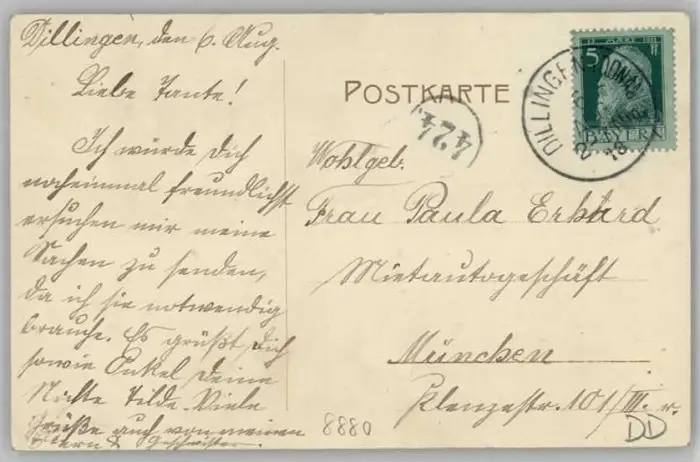 Dillingen, den 6. Aug.
Liebe Tante!
Ich würde dich
nocheinmal freundlichst
ersuchen mir meine
Sachen zu senden,
da ich sie notwendig
brauche. Es grüßt dich
sowie Onkel deine
Nichte Tilde. Viele
Grüße auch von meinen
Eltern & Geschwister.
POSTKARTE
424
DILLINGEN (DONAU)
5
BAYERN
Wohlgeb.
Frau Paula Erhard
Mietautogeschäft
München
Klenzestr. 101/III. r.
8880
DD